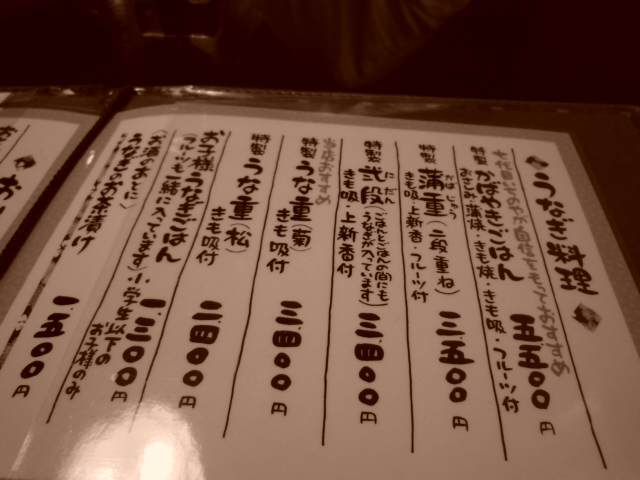 うなぎ料理
七代目
特製 かばやきごはん 五五〇〇円
おさしみ・蒲焼・きも焼・きも吸・フルーツ付
特製 蒲重(二段重ね) 三五〇〇円
かば じゅう
きも吸・上新香・フルーツ付
特製 弐段(ごはんとごはんの間にもうなぎが入っています) 三四〇〇円
に だん
きも吸・上新香付
当店おすすめ
特製 うな重(菊) 三四〇〇円
きも吸付
特製 うな重(松) 二四〇〇円
きも吸付
お子様うなぎごはん 一三〇〇円
(フルーツも一緒に入っています)小学生以下のお子様のみ
(お酒のあとに)
うなぎのお茶漬け 一五〇〇円